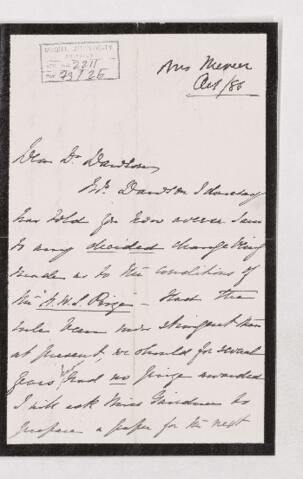 McGILL UNIVERSITY
ARCHIVES
ACC. NO. 2211
REF. 73/26
Mrs Mercer
Oct/86
Dear Dr Dawson,
Dr. Dawson I daresay
has told you how averse I am
to any decided change being
made as to the conditions of
the H.M.S. Prize - Had the
rules been more stringent than
at present, we should for several
years have had no prize awarded
I will ask Miss Gairdner to
prepare a paper for the next